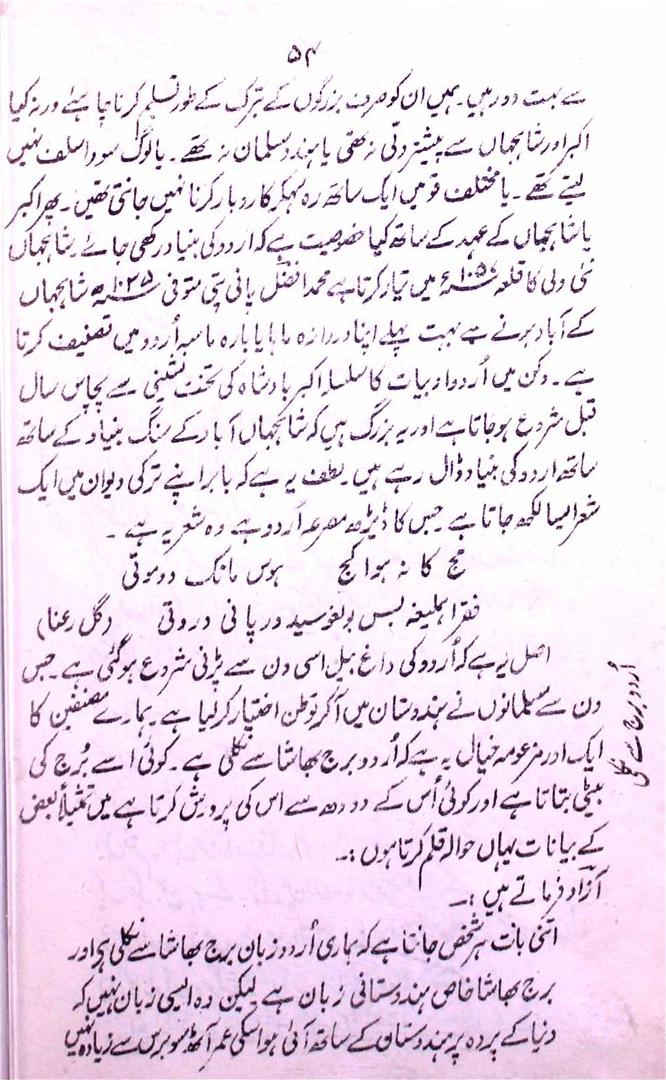 ۵۴
سے بہت دور ہیں۔ ہمیں ان کو صرف بزرگوں کے تبرک کے طور تسلیم کرنا چاہئے ورنہ کیا
اکبر اور شاہجہاں سے پیشتر دتی نہ تھی یا ہندو مسلمان نہ تھے۔ یا لوگ سودا سلف نہیں
لیتے تھے۔ یا مختلف قومیں ایک ساتھ رہ سہکر کاروبار کرنا نہیں جانتی تھیں۔ پھر اکبر
یا شاہجہاں کے عہد کے ساتھ کیا خصوصیت ہے کہ اردو کی بنیاد رکھی جائے۔ شاہجہاں
نئی دلی کا قلعہ ۱۰۵۸ھ میں تیار کرتا ہے محمد افضل پانی پتی متوفی ۱۰۳۵ھ شاہجہاں
کے آباد ہونے سے بہت پہلے اپنا دروازہ ماہا یا بارہ ماسہ اُردو میں تصنیف کرتا
ہے۔ دکن میں اُردو ادبیات کا سلسلہ اکبر بادشاہ کی تخت نشینی سے پچاس سال
قبل شروع ہو جاتا ہے اور یہ بزرگ ہیں کہ شاہجہاں آباد کے سنگ بنیاد کے ساتھ
ساتھ اردو کی بنیاد ڈال رہے ہیں۔ لطف یہ ہے کہ بابر اپنے ترکی دیوان میں ایک
شعر ایسا لکھ جاتا ہے جس کا ڈیڑھ مصرعہ اُردو ہے وہ شعر یہ ہے۔
مج کا نہ ہوا کج ہوس مانک و موتی
فقرا ہلیغہ بس بولغوسیدور پانی و روتی (گل رعنا)
اصل یہ ہے کہ اُردو کی داغ بیل اسی دن سے پڑنی شروع ہو گئی ہے۔ جس
دن سے مسلمانوں نے ہندوستان میں آکر توطن اختیار کر لیا ہے۔ ہمارے مصنفین کا
اُردو برج سے نکلی
ایک اور مزعومہ خیال یہ ہے کہ اُردو برج بھاشا سے نکلی ہے۔ کوئی اسے بُرج کی
بیٹی بتاتا ہے اور کوئی اُس کے دودھ سے اس کی پرورش کرتا ہے میں تمثیلاً بعض
کے بیانات یہاں حوالہ قلم کرتا ہوں :۔
آزاد فرماتے ہیں :۔
اتنی بات ہر شخص جانتا ہے کہ ہماری اُردو زبان برج بھاشا سے نکلی ہی اور
برج بھاشا خاص ہندوستانی زبان ہے لیکن وہ ایسی زبان نہیں کہ
دنیا کے پردہ پر ہندوستان کے ساتھ آئی ہو اسکی عمر آٹھ سو برس سے زیادہ نہیں